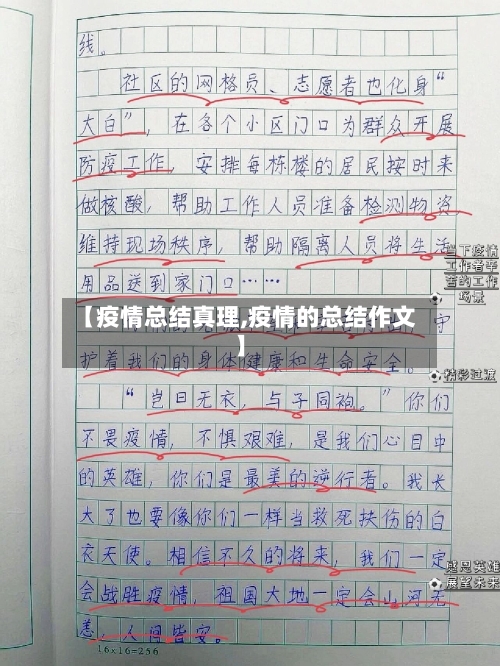 线。
社区的网格员、志愿者也化身“
大白”，在各个小区门口为群众开展
防疫工作，安排每栋楼的居民按时来
做核酸，帮助工作人员准备检测物资
维持现场秩序，帮助隔离人员将生活
用品送到家门口……
当下疫情
工作者辛
苦的工作
场景
【疫情总结真理,疫情的总结作文
】
守
护着我们的身体健康和生命安全。
精彩过渡
“岂曰无衣，与子同袍。”你们
不畏疫情，不惧艰难，是我们心目中
的英雄，你们是最美的逆行者。我长
大了也要像你们一样当救死扶伤的白
衣天使。相信不久的将来，我们一定
会战胜疫情，祖国大地一定会山河无
恙，人间皆安。
感恩英雄
展望未来
16×16=256